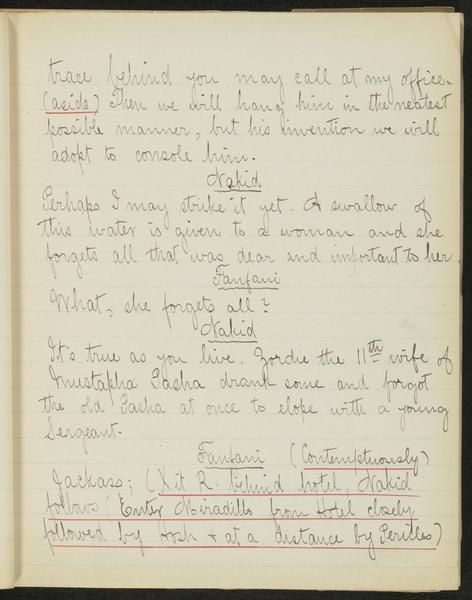 trace behind you may call at my office.
(aside) Then we will hang him in the neatest
possible manner, but his invention we will
adopt to console him.
Nakid
Perhaps I may strike it yet. A swallow of
this water is given to a woman and she
forgets all that was dear and important to her.
Fanfani
What, she forgets all?
Nakid
It's true as you live. Zordie the 11th wife of
Mustapha Pasha drank some and forgot
the old Pasha at once to elope with a young
Sergeant.
Fanfani (Contemptuously)
Jackass; (Xit R. behind hotel, Nakid
follows (Enter Miradillo from Hotel closely
followed by Hosh & at a distance by Perilles)